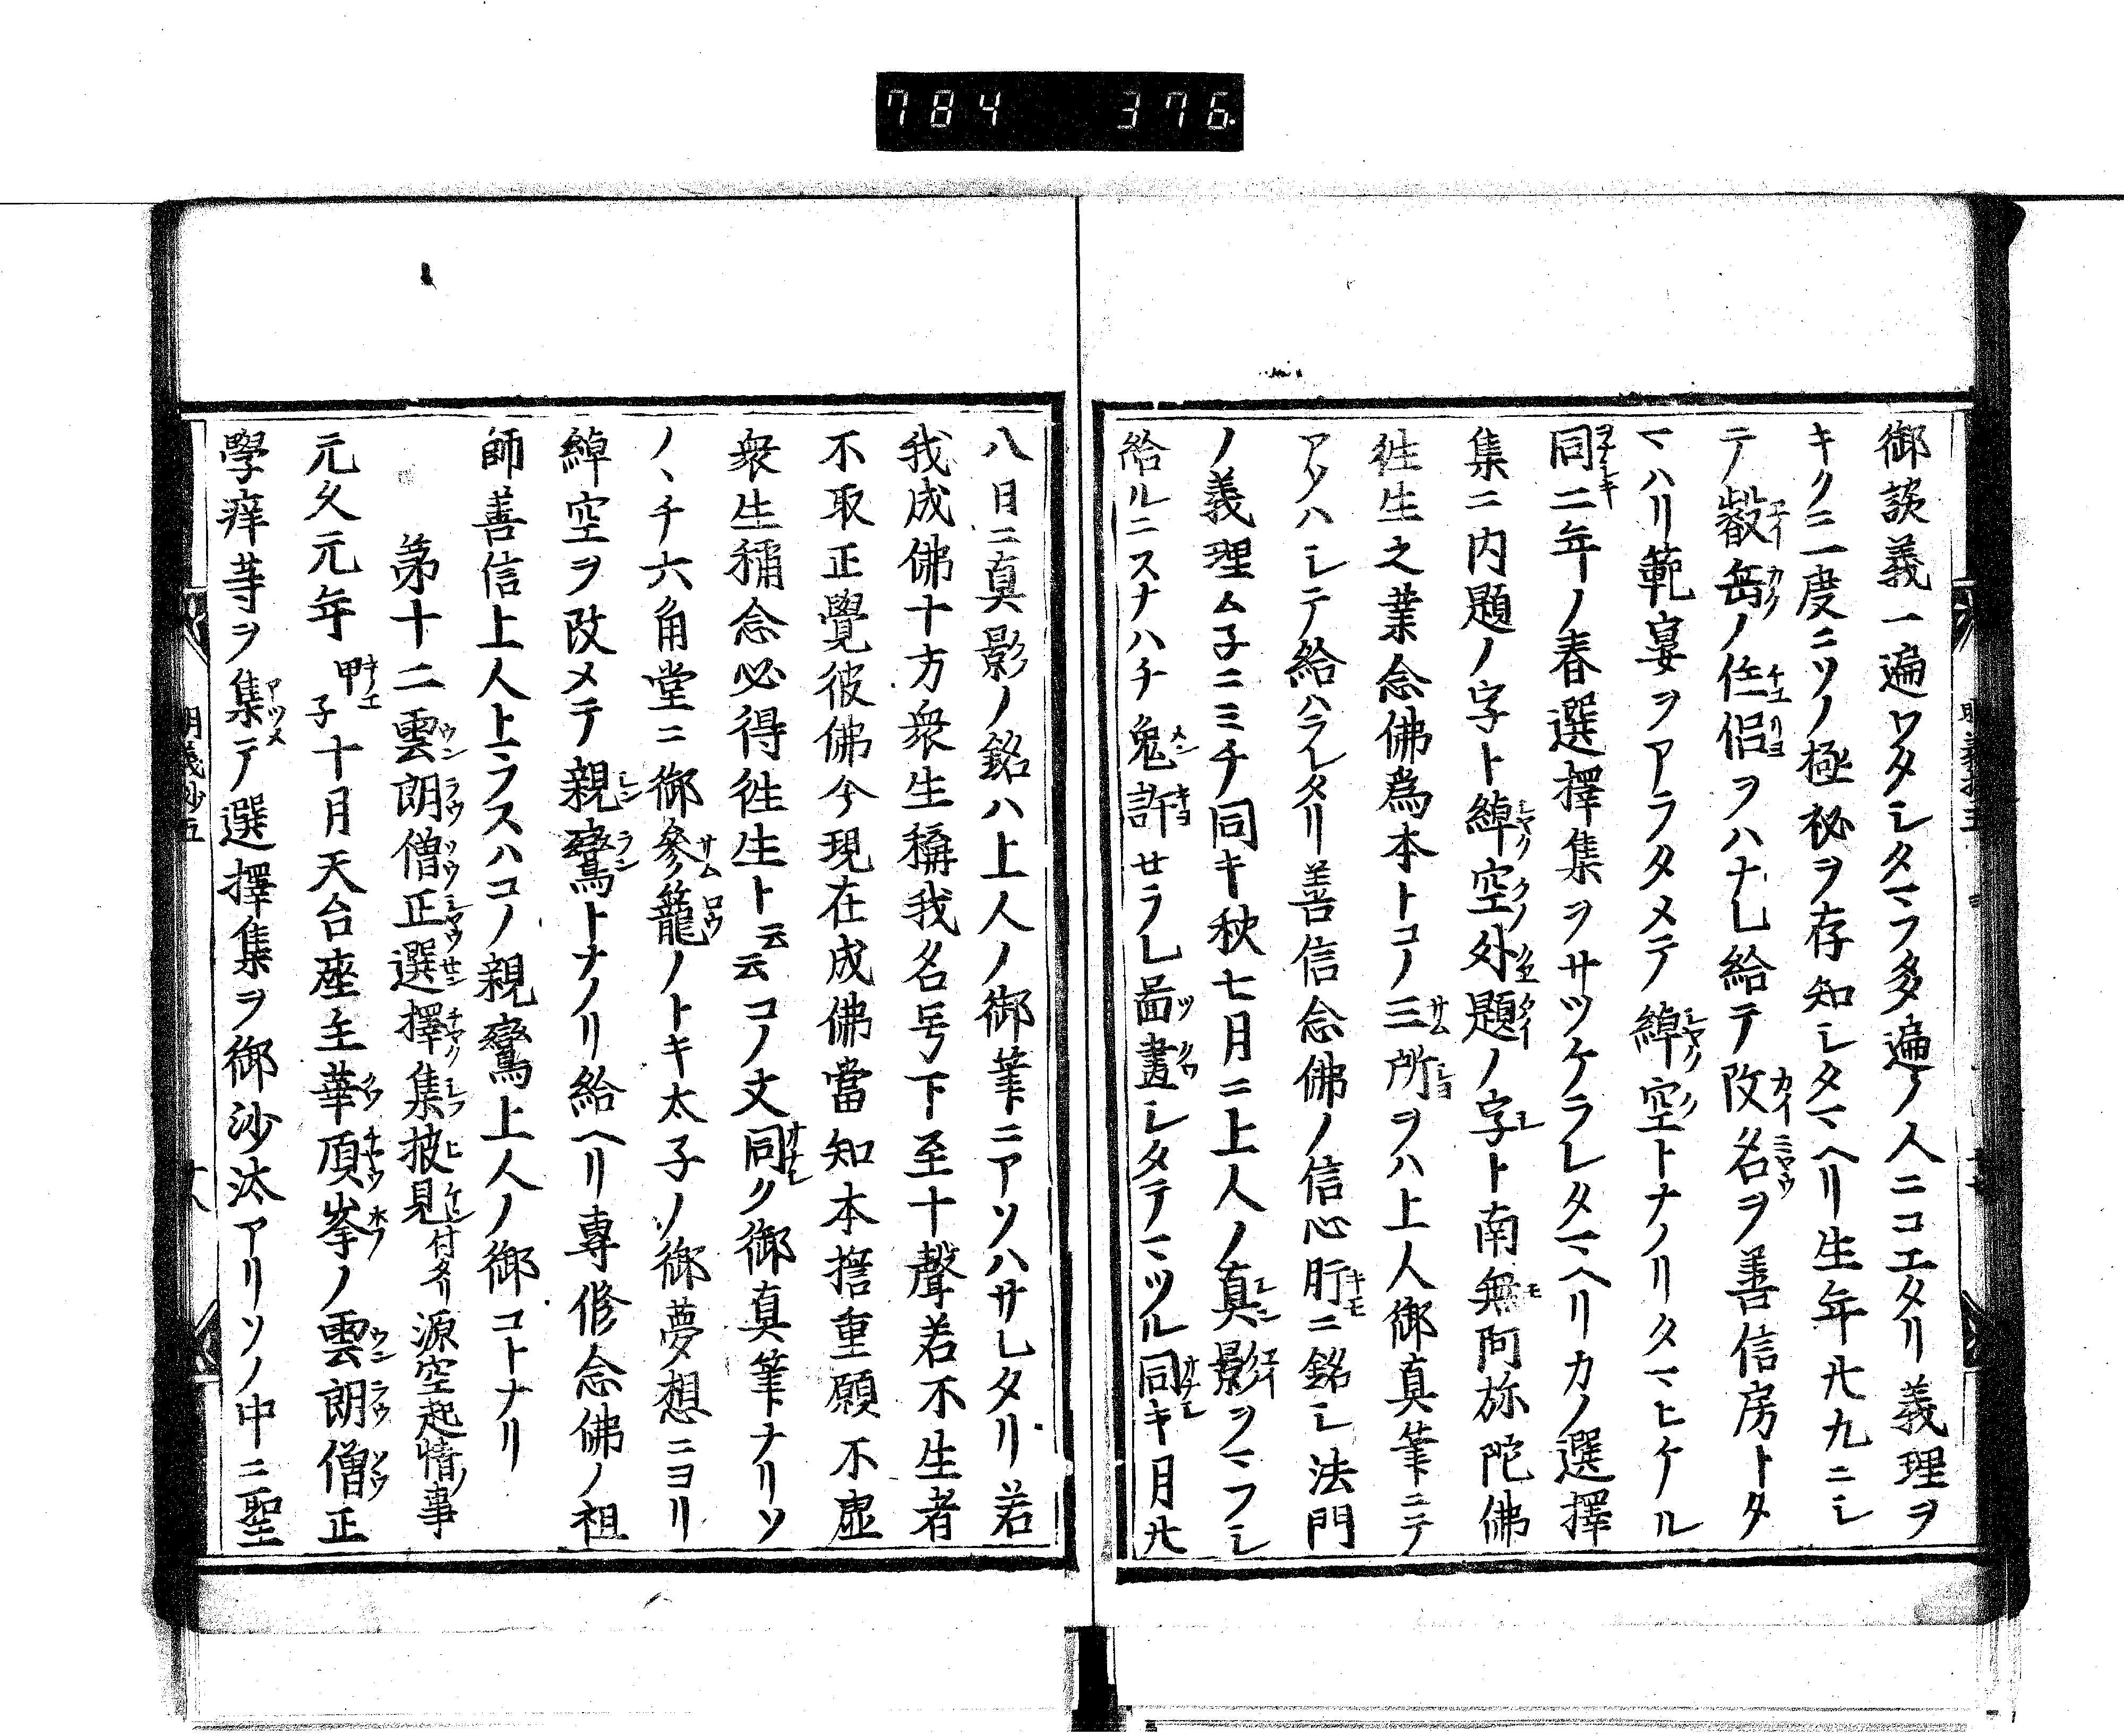 784 376
御談義一遍ワタシタマフ多遍ノ人ニコエタリ義理ヲ
キク二一度ニソノ極秘ヲ存知シタマヘリ生年廿九ニシ
テ叡岳ノ住侶ヲハナレ給テ改名ヲ善信房トタ
マハリ範宴ヲアラタメテ綽空トナノリタマヒケル
同二年ノ春選擇集ヲサツケラレタマヘリカノ選擇
集ニ内題ノ字ト綽空外題ノ字ト南無阿弥陀佛
徃生之業念佛爲本トコノ三所ヲハ上人御真筆ニテ
アソハシテ給ハラレタリ善信念佛ノ信心肝ニ銘シ法門
ノ義理ムネニミチ同キ秋七月ニ上人ノ真影ヲマフシ
給ルニスナハチ免許セラレ啚畫シタテマツル同キ月廿
八日ニ真影ノ銘ハ上人ノ御筆ニアソハサレタリ若
我成佛十方衆生稱我名号下至十聲若不生者
不取正覺彼佛今現在成佛當知本擔重願不虚
衆生稱念必得徃生ト云云コノ文同ク御真筆ナリソ
ノヽチ六角堂ニ御參籠ノトキ太子ノ御夢想ニヨリ
綽空ヲ改メテ親鸞トナノリ給ヘリ專修念佛ノ祖
師善信上人トマフスハコノ親鸞上人ノ御コトナリ
第十二雲朗僧正選擇集披見付タリ源空起情ノ事
元久元年甲子十月天台座主華頂峯ノ雲朗僧正
學痒等ヲ集テ選擇集ヲ御沙汰アリソノ中ニ聖
明義抄五